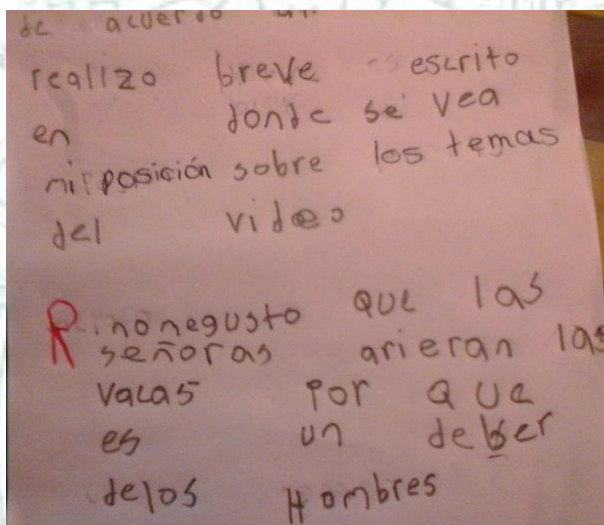 de acuerdo
realizo breve escrito
en donde se vea
mi posición sobre los temas
del video
R. nonegusto que las
señoras arieran las
vacas por que
es un deber
delos Hombres